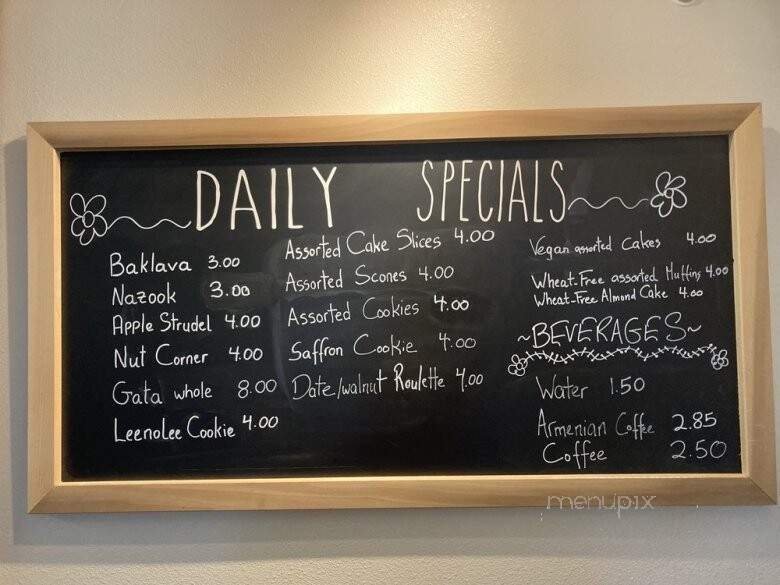 DAILY SPECIALS
Baklava 3.00
Nazook 3.00
Apple Strudel 4.00
Nut Corner 4.00
Gata whole 8.00
Leenolee Cookie 4.00
Assorted Cake Slices 4.00
Assorted Scones 4.00
Assorted Cookies 4.00
Saffron Cookie 4.00
Date/walnut Roulette 4.00
Vegan assorted Cakes 4.00
Wheat-Free assorted Muffins 4.00
Wheat-Free Almond Cake 4.00
~BEVERAGES~
Water 1.50
Armenian Coffee 2.85
Coffee 2.50
menupix